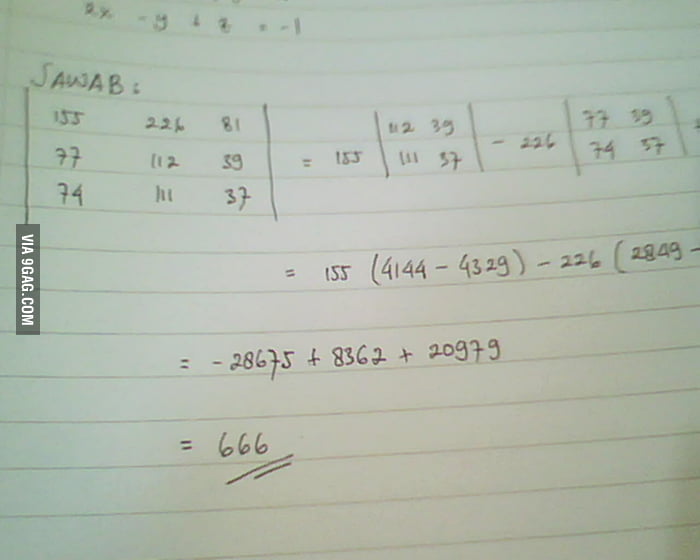 2x - y + z = -1
JAWAB :
155 226 81
77 112 39
74 111 37
= 155 | 112 39 | - 226 | 77 39 |
111 37 | 74 37 |
= 155 (4144 - 4329) - 226 (2849 -
= - 28675 + 8362 + 20979
= 666
VIA 9GAG.COM